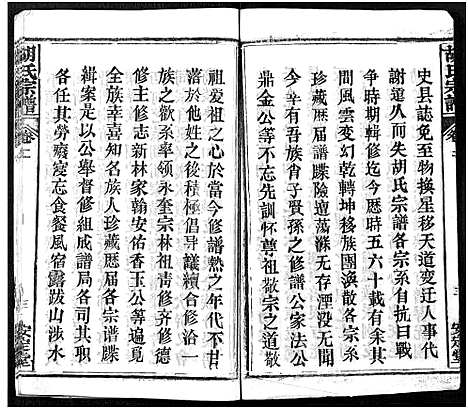 胡氏宗譜
卷一
史县誌免至物換星移天道变迁人事代
謝道人而失胡氏宗譜各宗自抗日戰
争時期輯修以迄今歷時五六十載有余其
间世景幻变乾轉坤移族團渙散各宗系
珍藏歷届譜牒險遭蕩滌无存湮没无聞
吾宗幸存金友賢孫之修譜公家法公
鼎金公等不忘先訓怀尊祖敬宗之道敬
安定堂
祖爱祖之心於當今修譜熱之年代不甘
落於他姓之後積極倡导議續合修洽一
族之歡系率领永奎宗林祖清修楚修前
修主修志新林家翰安佑香玉公等遍見
全族幸喜知名族人珍藏歷届各宗谱牒
緝案是以公舉督修組成譜局各司其責
各任其勞廢寝忘食餐風宿露跋山涉水
安定堂
胡氏宗譜
卷一